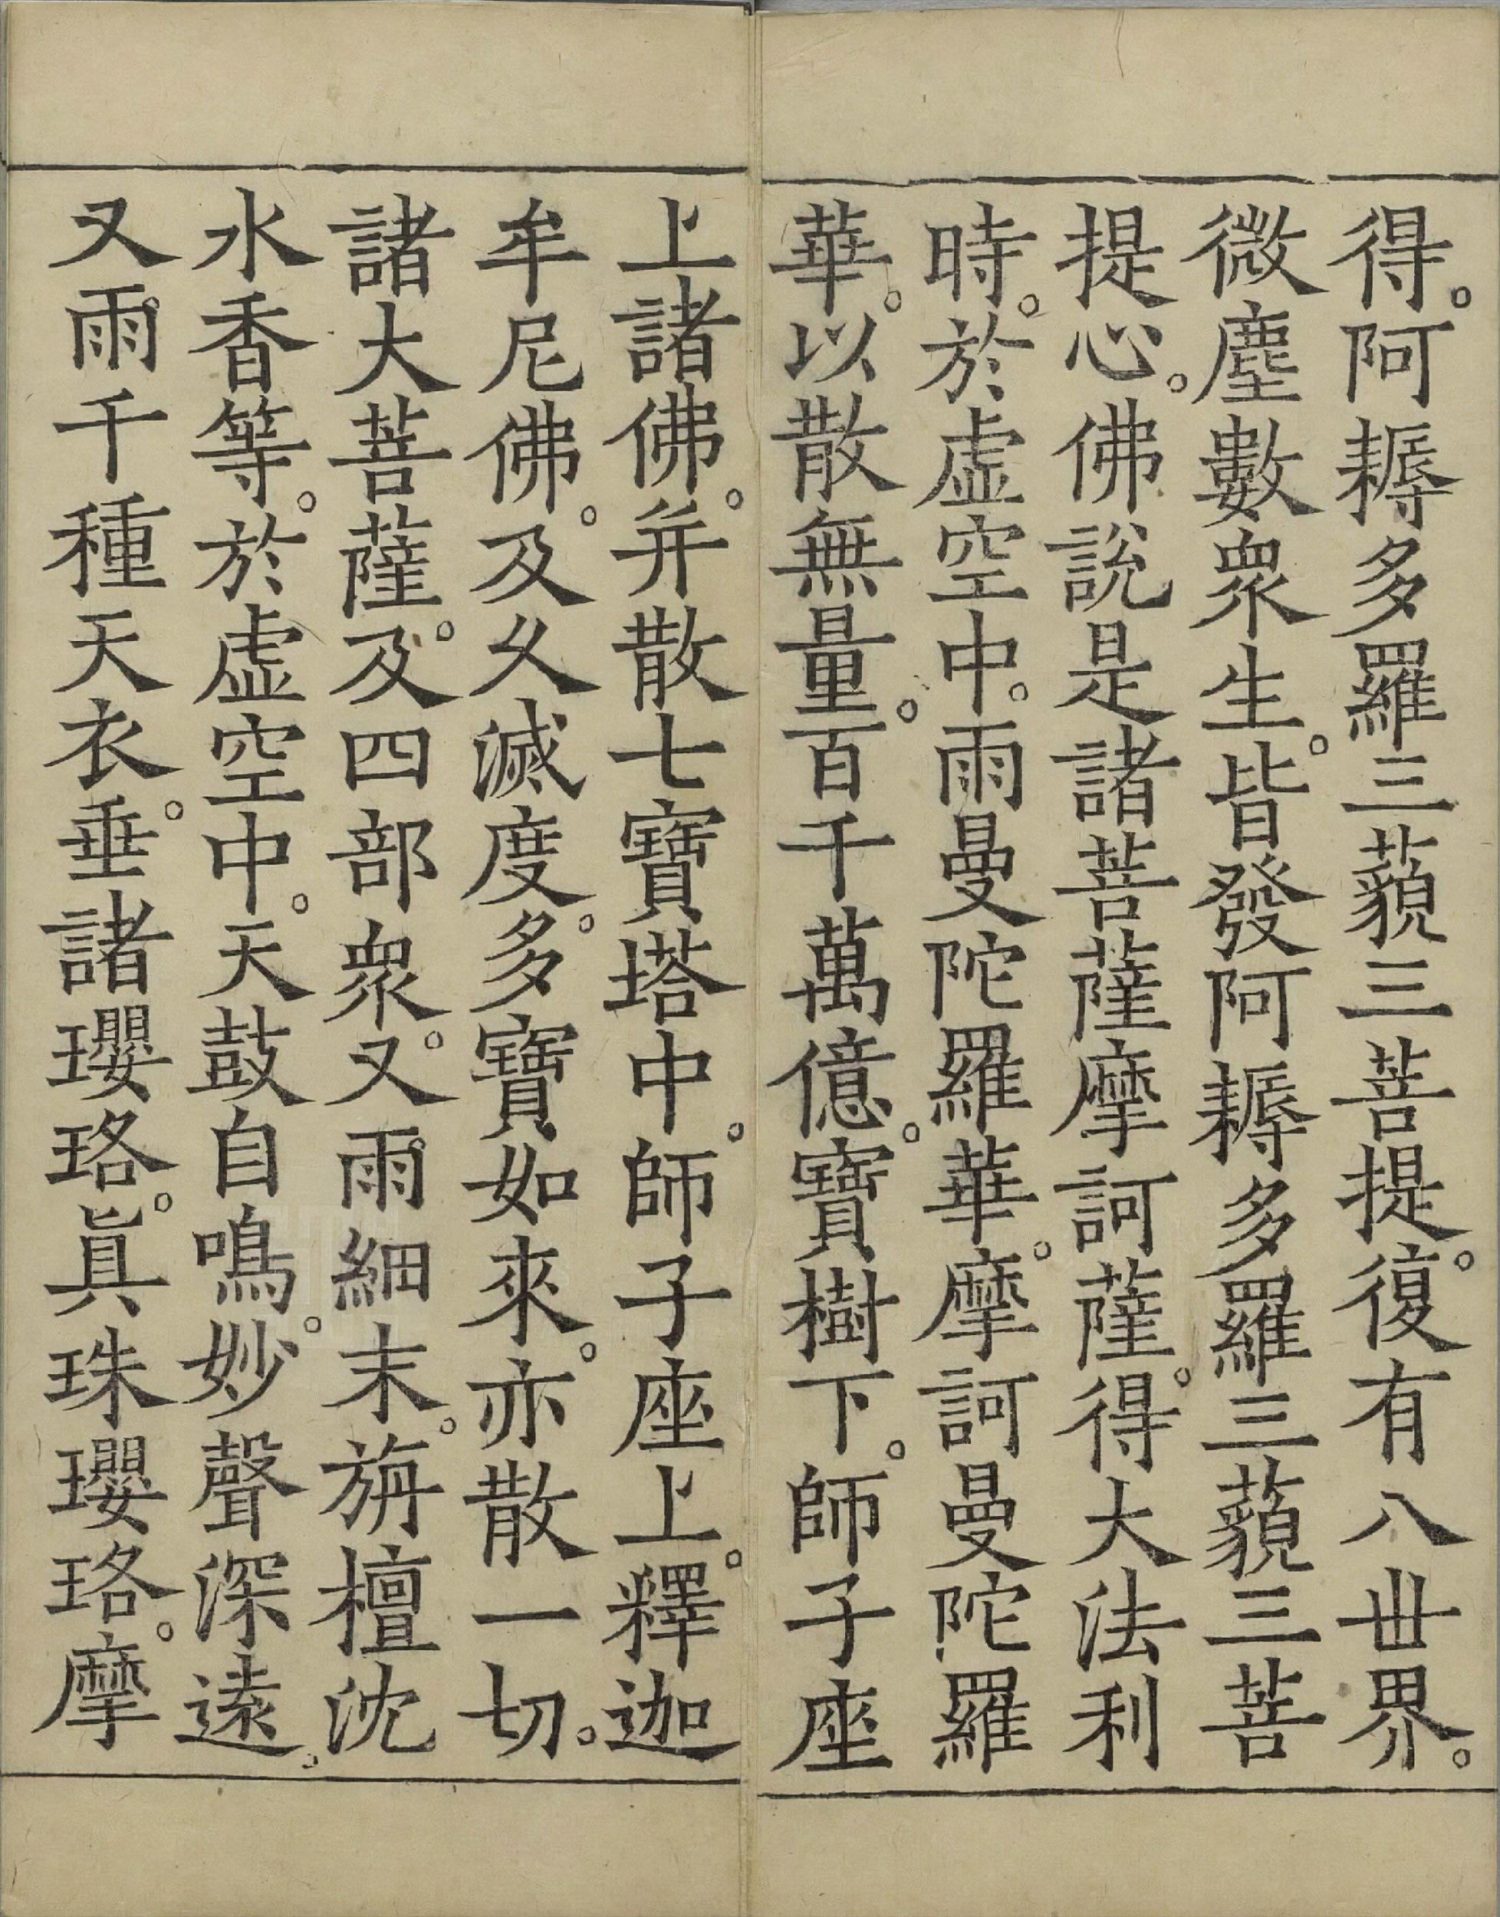 得。阿耨多羅三藐三菩提。復有八世界。
微塵數衆生。皆發阿耨多羅三藐三菩
提心。佛說是諸菩薩摩訶薩。得大法利
時。於虛空中。雨曼陀羅華。摩訶曼陀羅
華。以散無量。百千萬億。寶樹下。師子座
上諸佛。并散七寶塔中。師子座上。釋迦
牟尼佛。及久滅度。多寶如來。亦散一切。
諸大菩薩。及四部衆。又雨細末。旃檀沈
水香等。於虛空中。天鼓自鳴。妙聲深遠。
又雨千種天衣。垂諸瓔珞。眞珠瓔珞。摩